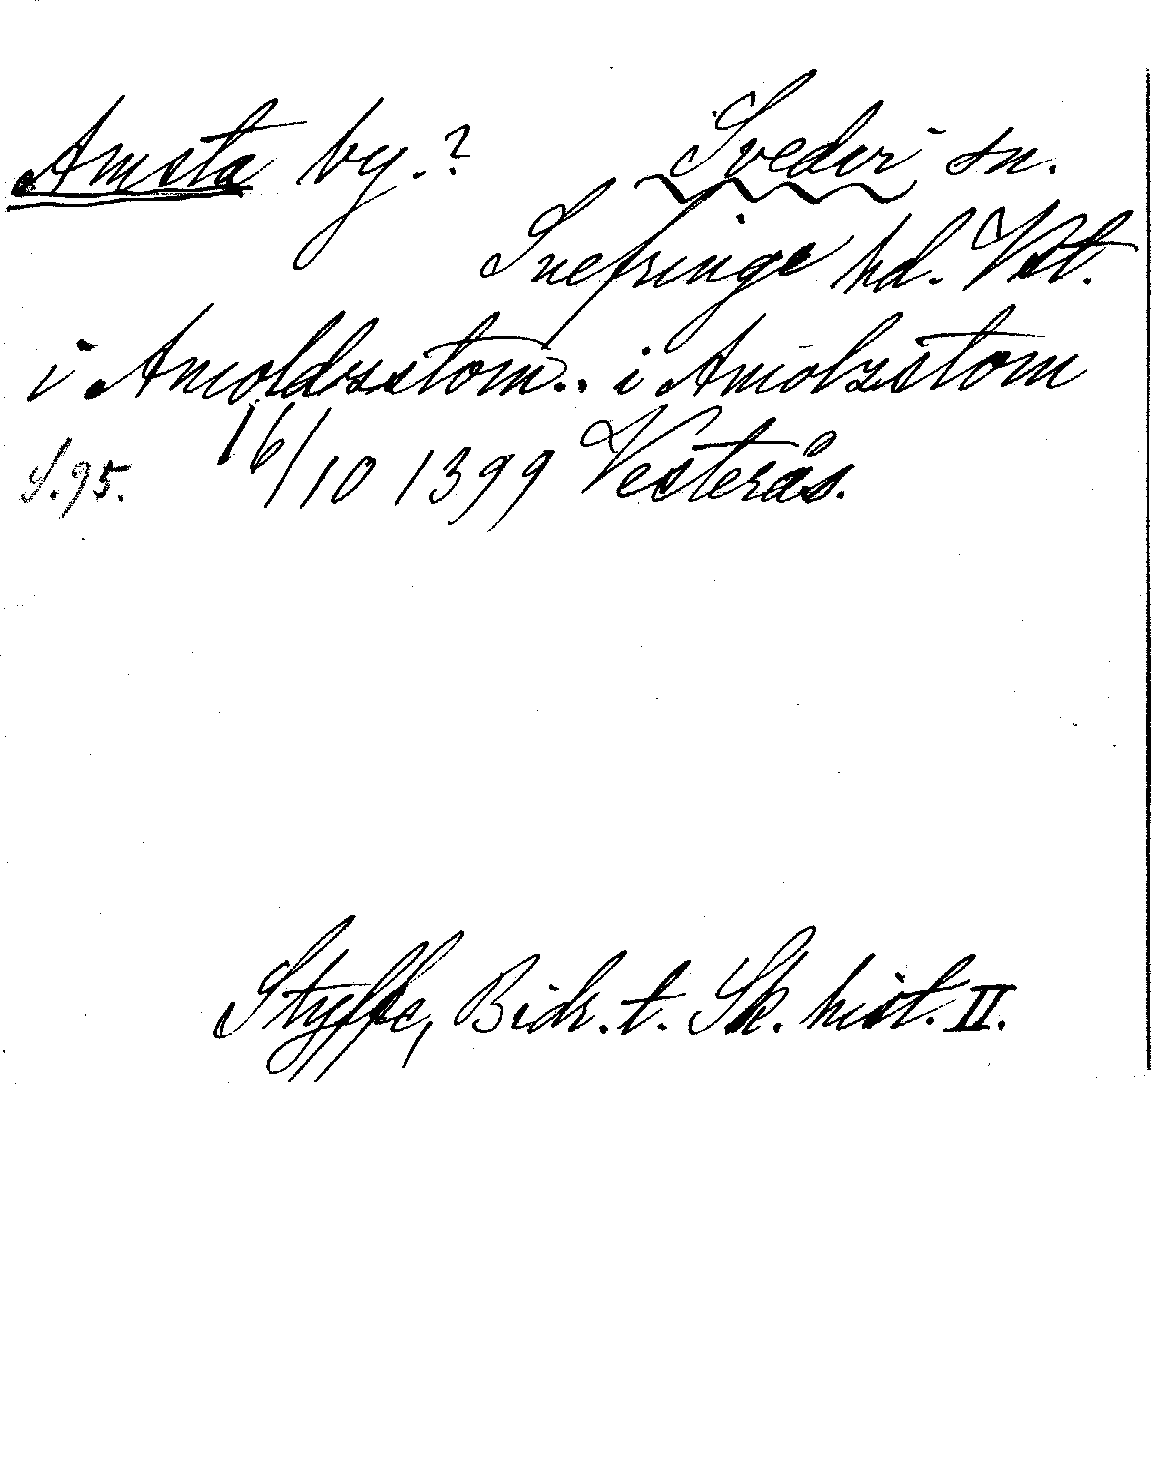 Amsta by.? Svedvi sn.
Snefringe hd. Vstl.
i Amoldzstom.. i Amolzstom
S.95. 16/10 1399 Vesterås.
Styffe, Bidr. t. Sk. hist. II.